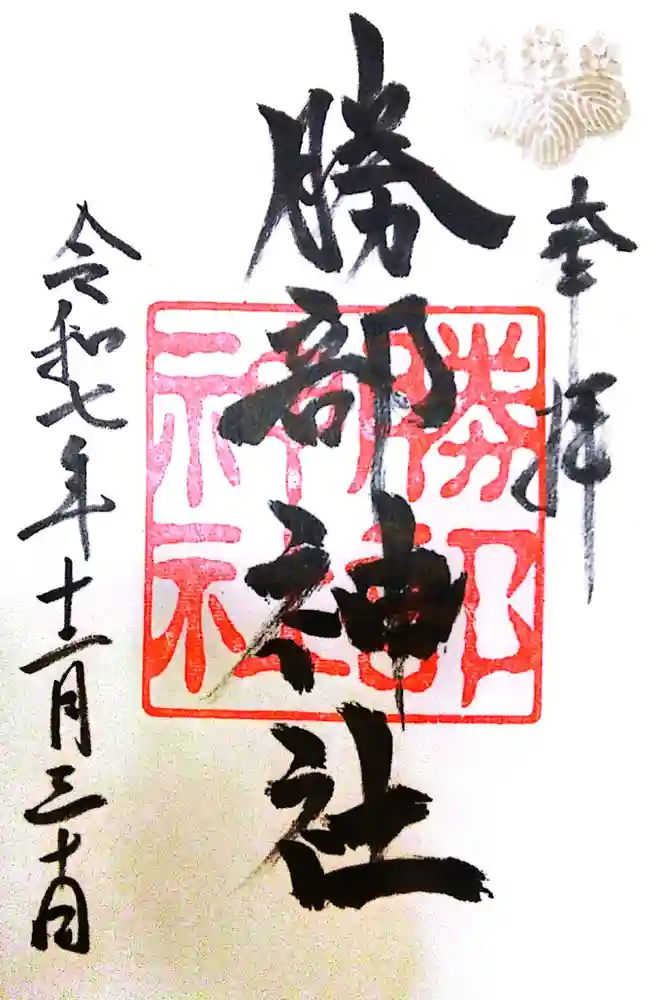 奉拝
勝部神社
勝部神社
令和七年十二月三十日